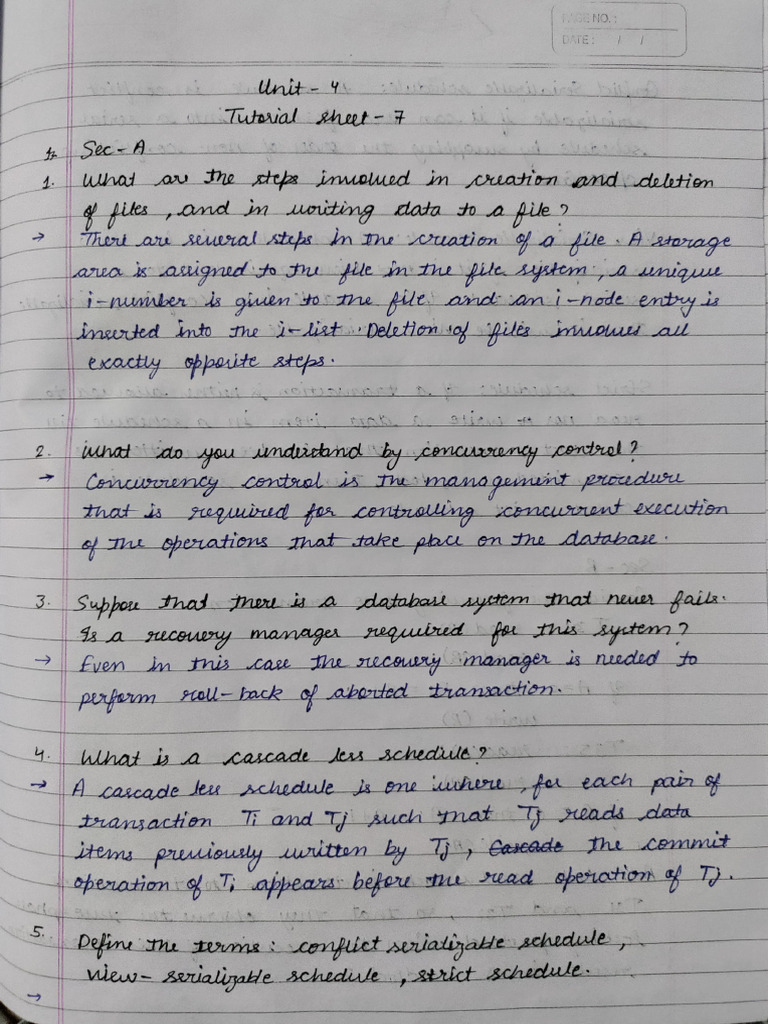 PAGE NO.:
DATE: / /
Unit - 4
Tutorial sheet - 7
Sec - A
1. What are the steps involved in creation and deletion
of files, and in writing data to a file?
→ There are several steps in the creation of a file. A storage
area is assigned to the file in the file system, a unique
i-number is given to the file and an i-node entry is
inserted into the i-list. Deletion of files involves all
exactly opposite steps.
2. What do you understand by concurrency control?
→ Concurrency control is the management procedure
that is required for controlling concurrent execution
of the operations that take place on the database.
3. Suppose that there is a database system that never fails.
Is a recovery manager required for this system?
→ Even in this case the recovery manager is needed to
perform roll-back of aborted transaction.
4. What is a cascade less schedule?
→ A cascade less schedule is one where, for each pair of
transaction Ti and Tj such that Tj reads data
items previously written by Tj, Cascade the commit
operation of Ti appears before the read operation of Tj.
5. Define the terms: conflict serializable schedule,
view-serializable schedule, strict schedule.
→